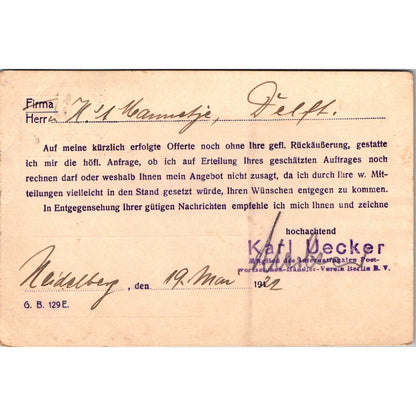 Firma
Herrn H. 't Mannetje, Delft.
Auf meine kürzlich erfolgte Offerte noch ohne Ihre gefl. Rückäußerung, gestatte
ich mir die höfl. Anfrage, ob ich auf Erteilung Ihres geschätzten Auftrages noch
rechnen darf oder weshalb Ihnen mein Angebot nicht zusagt, da ich durch Ihre w. Mit-
teilungen vielleicht in den Stand gesetzt würde, Ihren Wünschen entgegen zu kommen.
In Entgegensehung Ihrer gütigen Nachrichten empfehle ich mich Ihnen und zeichne
hochachtend
Karl Decker
Mitglied des Internationalen Post-
wertzeichen-Händler-Verein Berlin E. V.
Heidelberg, den 19. Mai 1922
G. B. 129 E.